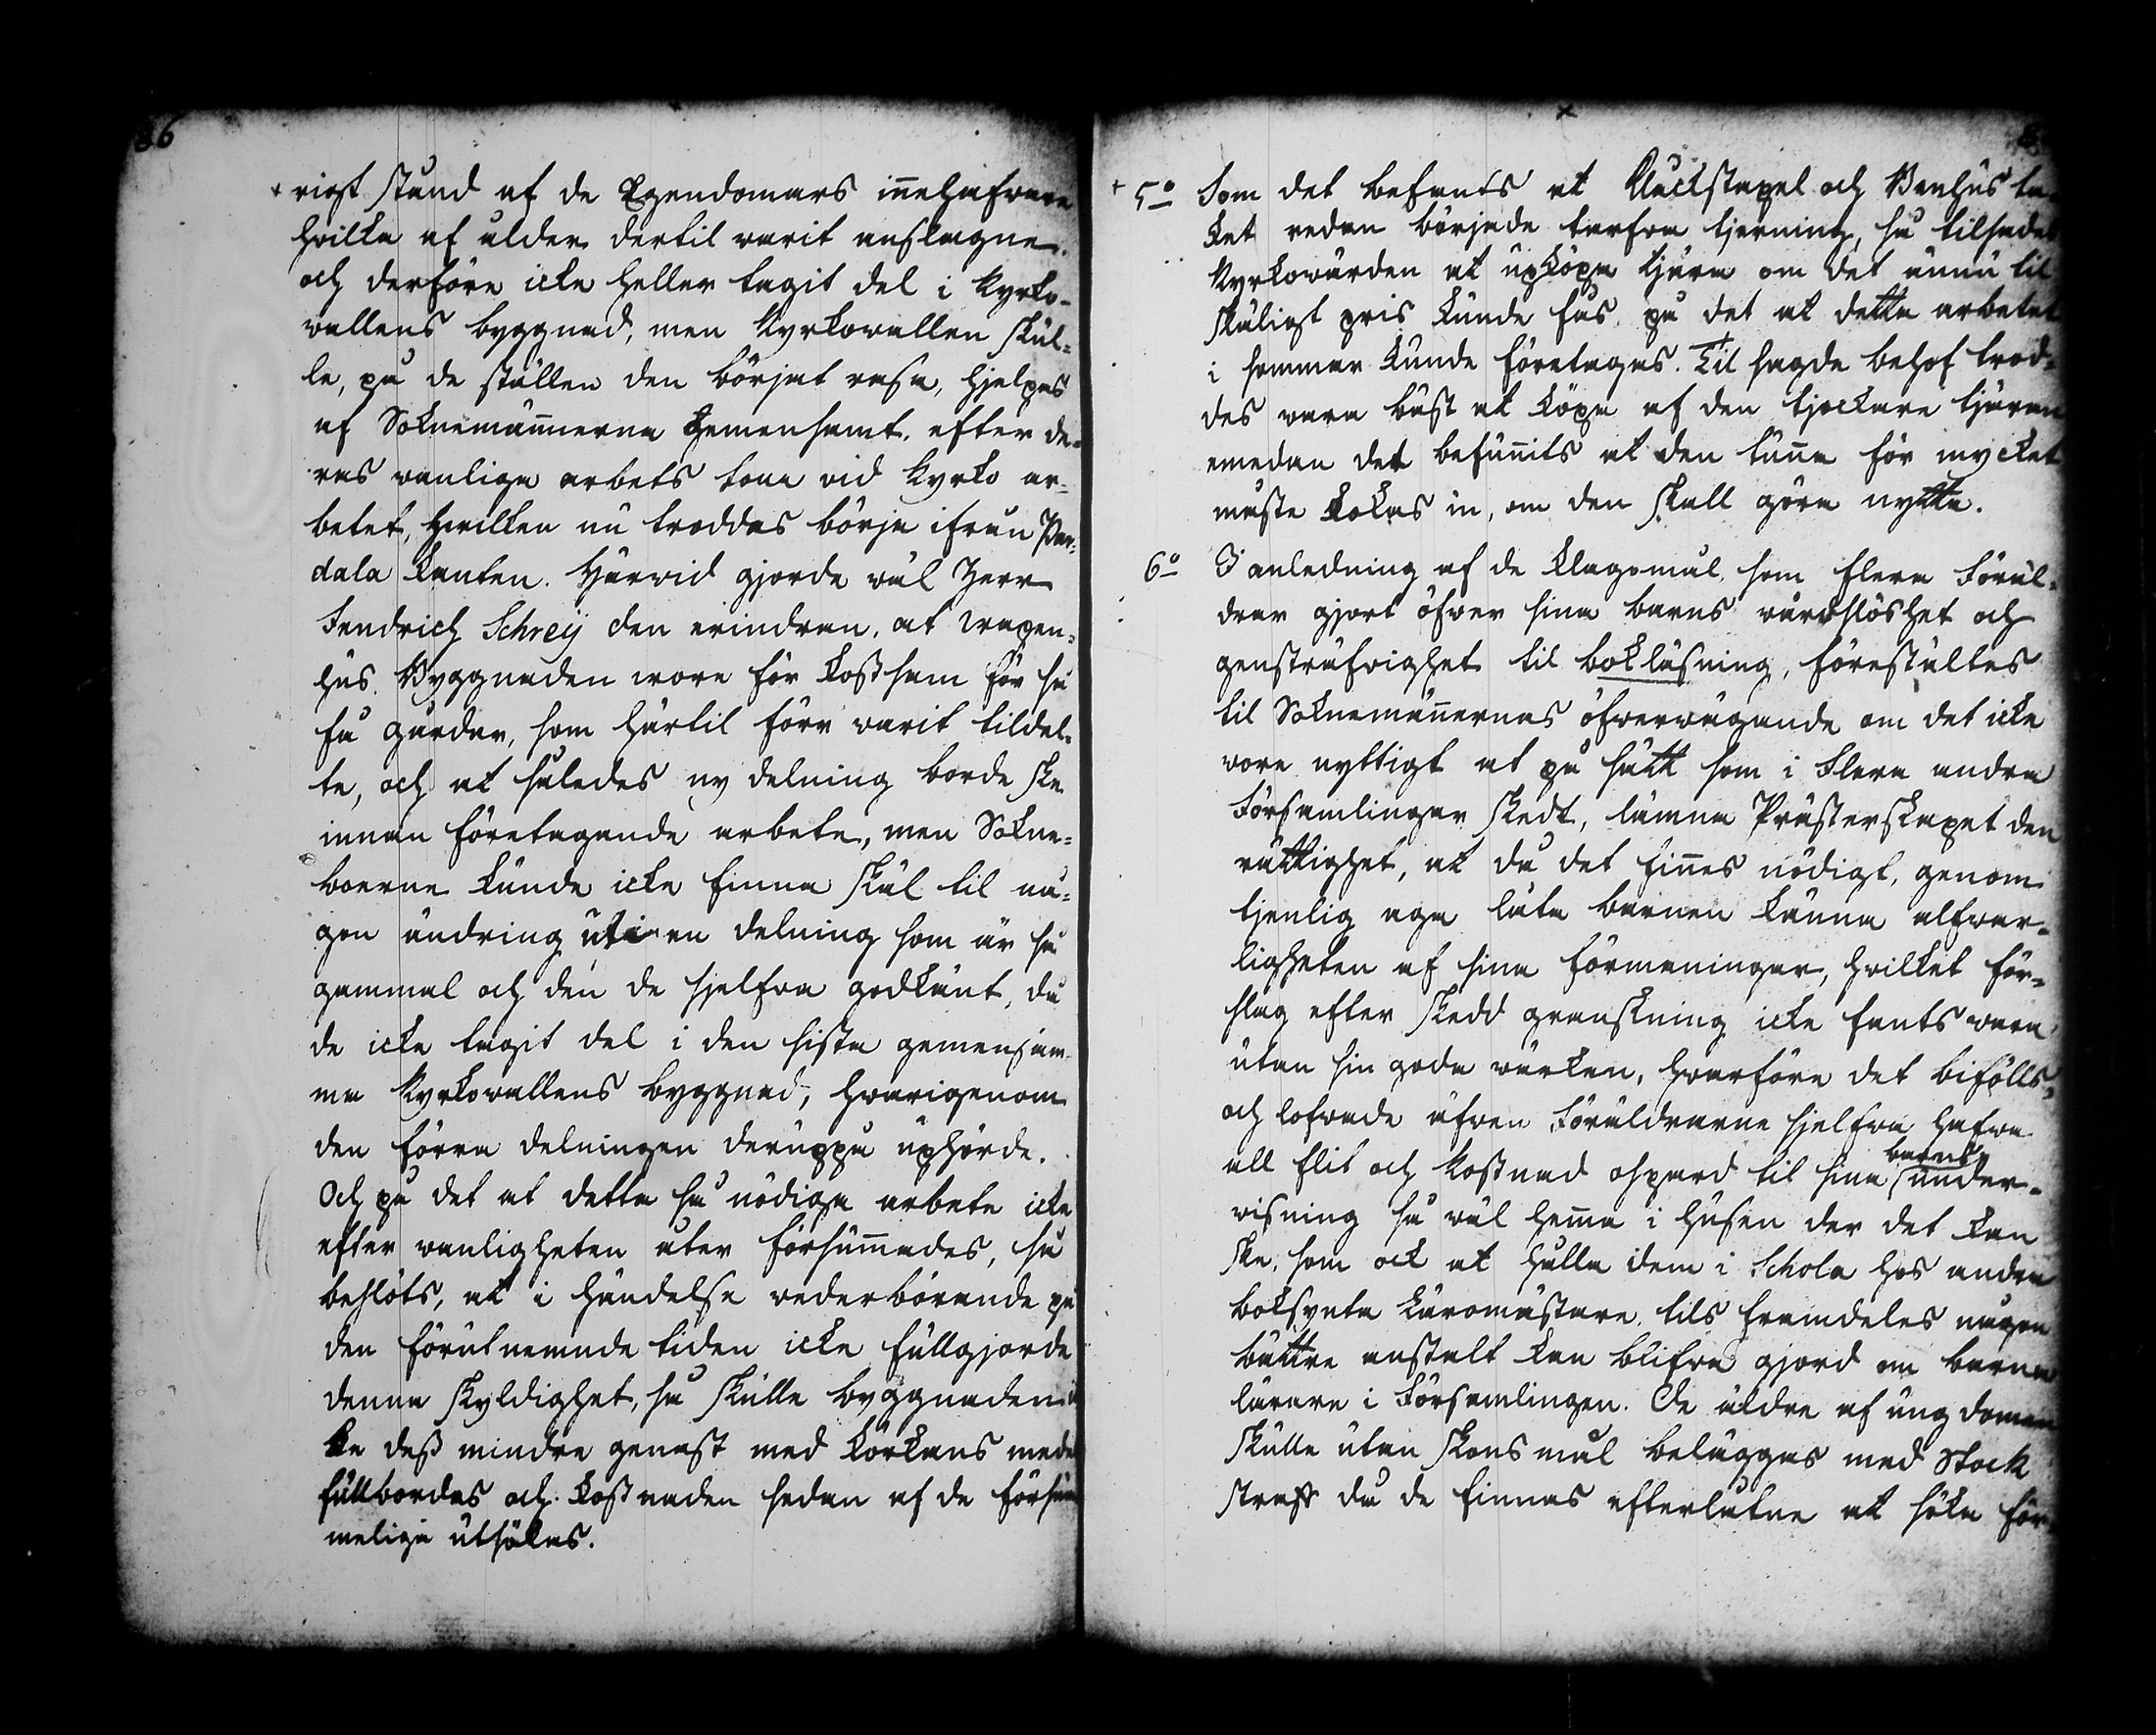 86
rigt stånd af de Egendomars innehafvare
hvilka af ålder dertil varit anslagne.
och derföre icke heller tagit del i Kyrko-
vallens byggnad, men Kyrkovallen skul-
le, på de ställen den börjat rasa, hjelpas
af Soknemännerna gemensamt, efter de-
ras vanliga arbets tour vid Kyrko ar-
betet, hvilken nu troddes börja ifrån Par-
dala kanten. Härvid gjorde väl Herr
Fendrich Schreij den erindran, at vapen-
hus Byggnaden vore för kostsam för så
få gårdar, som härtil förr varit tildel-
te, och at således ny delning borde ske
innan företagande arbete, men Sokne-
boerne kunde icke finna skäl til nå-
gon ändring uti en delning som är så
gammal och den de sjelfva godkänt, då
de icke tagit del i den sista gemensam-
ma Kyrkovallens byggnad, hvarigenom
den förra delningen deruppå uphörde.
Och på det at detta så nödiga arbete icke
efter vanligheten åter försummades, så
beslöts, at i händelse vederbörande på
den förutnemnde tiden icke fullgjorde
denna skyldighet, så skulle byggnaden ic
ke dess mindre genast med körkans medel
fullbordas och kostnaden sedan af de försum
melige utsökas.
5o Som det befants at Klåckstapel och Benhus ta
ket redan började tarfva tjerning, så tilsades
Kyrkovärden at upköpa tjära om det ännu til
skäligt pris kunde fås, på det at detta arbetet
i sommar kunde företagas. Til sagde behof trod-
des vara bäst at köpa af den tjockare tjäran
emedan det befunnits at den tunna för mycket
måste kokas in, om den skall göra nytta.
6o I anledning af de klagomål, som flera Föräl-
drar gjort öfver sina barns vårdslöshet och
genstrefvighet til bokläsning, förestältes
til Soknemännernas öfvervägande om det icke
vore nyttigt at på sätt som i flera andra
Församlingar skedt, lämna Prästerskapet den
rättighet, at då det finnes nödigt, genom
tjenlig aga låta barnen känna alfvar-
ligheten af sina förmaningar, hvilket för-
slag efter skedd granskning icke fants vara
utan sin goda värkan, hvarföre det biföllts,
och lofvade äfven Föräldrarne sjelfva hafva
all flit och kostnad ospard til sina barns under-
visning så väl hemma i husen der det kan
ske, som ock at hålla dem i Schola hos andra
boksynta Läromästare, tils framdeles någon
bättre anstalt kan blifva gjord om barna
lärare i Församlingen. De äldre af ungdomen
skulle utan skonsmål beläggas med Stock
straff då de finnas efterlåtne at söka för-